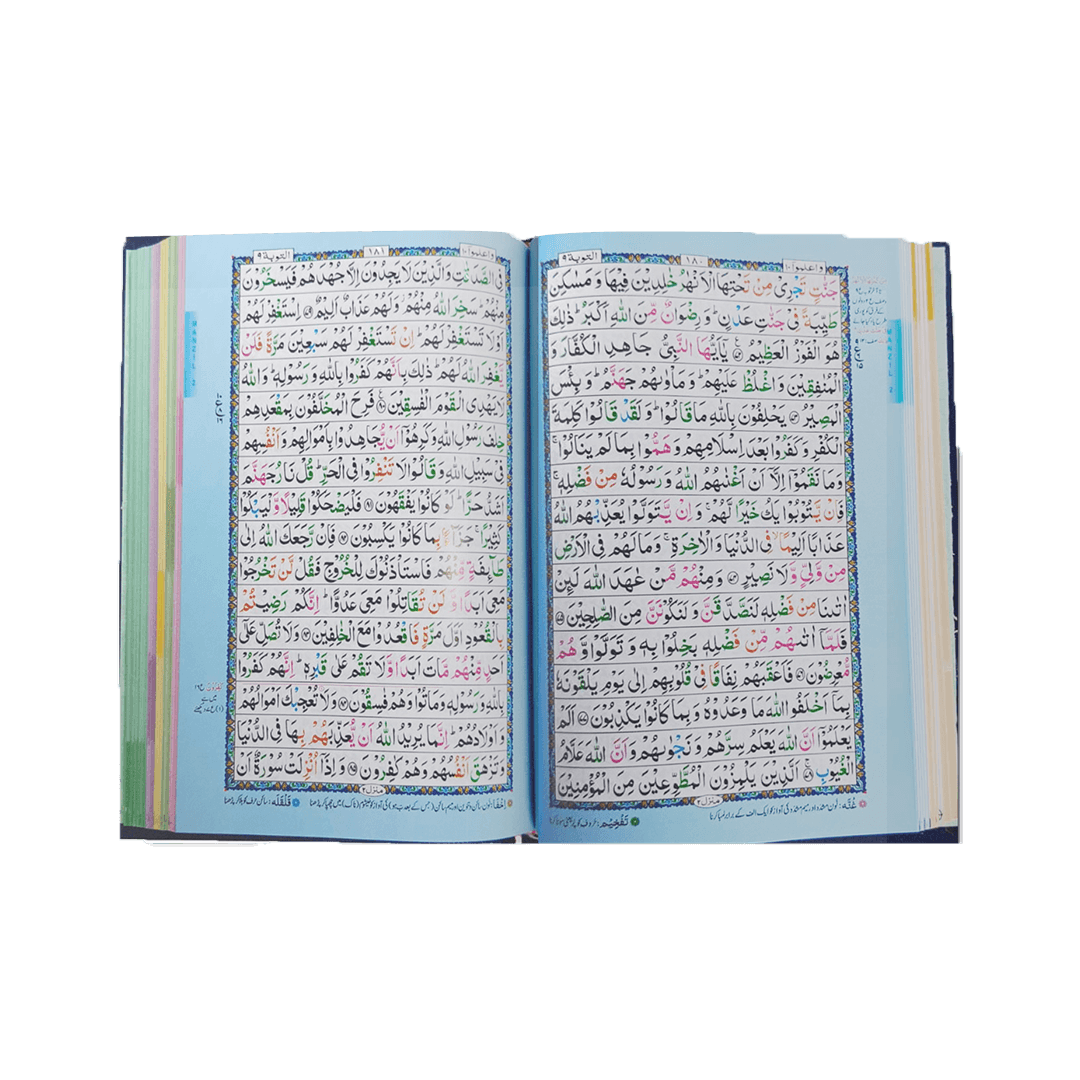 واعلموا ١٠
١٨٠
التوبة ٩
جَنّٰتٍ تَجْرِىْ مِنْ تَحْتِهَا الْاَنْهٰرُ خٰلِدِيْنَ فِيْهَا وَ مَسٰكِنَ
طَيِّبَةً فِىْ جَنّٰتِ عَدْنٍ ؕ وَ رِضْوَانٌ مِّنَ اللّٰهِ اَكْبَرُ ؕ ذٰلِكَ
هُوَ الْفَوْزُ الْعَظِيْمُ ﴿۷۲﴾ يٰۤاَيُّهَا النَّبِىُّ جَاهِدِ الْكُفَّارَ وَ
الْمُنٰفِقِيْنَ وَ اغْلُظْ عَلَيْهِمْ ؕ وَ مَاْوٰىهُمْ جَهَنَّمُ ؕ وَ بِئْسَ
الْمَصِيْرُ ﴿۷۳﴾ يَحْلِفُوْنَ بِاللّٰهِ مَا قَالُوْا ؕ وَ لَقَدْ قَالُوْا كَلِمَةَ
الْكُفْرِ وَ كَفَرُوْا بَعْدَ اِسْلَامِهِمْ وَ هَمُّوْا بِمَا لَمْ يَنَالُوْا ۚ
وَ مَا نَقَمُوْۤا اِلَّاۤ اَنْ اَغْنٰىهُمُ اللّٰهُ وَ رَسُوْلُهٗ مِنْ فَضْلِهٖ ۚ
فَاِنْ يَّتُوْبُوْا يَكُ خَيْرًا لَّهُمْ ۚ وَ اِنْ يَّتَوَلَّوْا يُعَذِّبْهُمُ اللّٰهُ
عَذَابًا اَلِيْمًا ۙ فِى الدُّنْيَا وَ الْاٰخِرَةِ ۚ وَ مَا لَهُمْ فِى الْاَرْضِ
مِنْ وَّلِىٍّ وَّ لَا نَصِيْرٍ ﴿۷۴﴾ وَ مِنْهُمْ مَّنْ عٰهَدَ اللّٰهَ لَئِنْ
اٰتٰىنَا مِنْ فَضْلِهٖ لَنَصَّدَّقَنَّ وَ لَنَكُوْنَنَّ مِنَ الصّٰلِحِيْنَ ﴿۷۵﴾
فَلَمَّاۤ اٰتٰىهُمْ مِّنْ فَضْلِهٖ بَخِلُوْا بِهٖ وَ تَوَلَّوْا وَّ هُمْ
مُّعْرِضُوْنَ ﴿۷۶﴾ فَاَعْقَبَهُمْ نِفَاقًا فِىْ قُلُوْبِهِمْ اِلٰى يَوْمِ يَلْقَوْنَهٗ
بِمَاۤ اَخْلَفُوا اللّٰهَ مَا وَعَدُوْهُ وَ بِمَا كَانُوْا يَكْذِبُوْنَ ﴿۷۷﴾ اَلَمْ
يَعْلَمُوْۤا اَنَّ اللّٰهَ يَعْلَمُ سِرَّهُمْ وَ نَجْوٰىهُمْ وَ اَنَّ اللّٰهَ عَلَّامُ
الْغُيُوْبِ ﴿۷۸﴾ اَلَّذِيْنَ يَلْمِزُوْنَ الْمُطَّوِّعِيْنَ مِنَ الْمُؤْمِنِيْنَ
منزل ٢
غُنَّه: نون مشدد اور میم مشدد کی آواز کو ایک الف کے برابر لمبا کرنا
تَفْخِيْم: حروف کو پُر یعنی موٹا کرنا
MANZIL 2
واعلموا ١٠
١٨١
التوبة ٩
فِى الصَّدَقٰتِ وَ الَّذِيْنَ لَا يَجِدُوْنَ اِلَّا جُهْدَهُمْ فَيَسْخَرُوْنَ
مِنْهُمْ ؕ سَخِرَ اللّٰهُ مِنْهُمْ ۫ وَ لَهُمْ عَذَابٌ اَلِيْمٌ ﴿۷۹﴾ اِسْتَغْفِرْ لَهُمْ
اَوْ لَا تَسْتَغْفِرْ لَهُمْ ؕ اِنْ تَسْتَغْفِرْ لَهُمْ سَبْعِيْنَ مَرَّةً فَلَنْ
يَّغْفِرَ اللّٰهُ لَهُمْ ؕ ذٰلِكَ بِاَنَّهُمْ كَفَرُوْا بِاللّٰهِ وَ رَسُوْلِهٖ ؕ وَ اللّٰهُ
لَا يَهْدِى الْقَوْمَ الْفٰسِقِيْنَ ﴿۸۰﴾ فَرِحَ الْمُخَلَّفُوْنَ بِمَقْعَدِهِمْ
خِلٰفَ رَسُوْلِ اللّٰهِ وَ كَرِهُوْۤا اَنْ يُّجَاهِدُوْا بِاَمْوَالِهِمْ وَ اَنْفُسِهِمْ
فِىْ سَبِيْلِ اللّٰهِ وَ قَالُوْا لَا تَنْفِرُوْا فِى الْحَرِّ ؕ قُلْ نَارُ جَهَنَّمَ
اَشَدُّ حَرًّا ؕ لَوْ كَانُوْا يَفْقَهُوْنَ ﴿۸۱﴾ فَلْيَضْحَكُوْا قَلِيْلًا وَّ لْيَبْكُوْا
كَثِيْرًا ۚ جَزَآءًۢ بِمَا كَانُوْا يَكْسِبُوْنَ ﴿۸۲﴾ فَاِنْ رَّجَعَكَ اللّٰهُ اِلٰى
طَآئِفَةٍ مِّنْهُمْ فَاسْتَاْذَنُوْكَ لِلْخُرُوْجِ فَقُلْ لَّنْ تَخْرُجُوْا
مَعِىَ اَبَدًا وَّ لَنْ تُقَاتِلُوْا مَعِىَ عَدُوًّا ؕ اِنَّكُمْ رَضِيْتُمْ
بِالْقُعُوْدِ اَوَّلَ مَرَّةٍ فَاقْعُدُوْا مَعَ الْخٰلِفِيْنَ ﴿۸۳﴾ وَ لَا تُصَلِّ عَلٰۤى
اَحَدٍ مِّنْهُمْ مَّاتَ اَبَدًا وَّ لَا تَقُمْ عَلٰى قَبْرِهٖ ؕ اِنَّهُمْ كَفَرُوْا
بِاللّٰهِ وَ رَسُوْلِهٖ وَ مَاتُوْا وَ هُمْ فٰسِقُوْنَ ﴿۸۴﴾ وَ لَا تُعْجِبْكَ اَمْوَالُهُمْ
وَ اَوْلَادُهُمْ ؕ اِنَّمَا يُرِيْدُ اللّٰهُ اَنْ يُّعَذِّبَهُمْ بِهَا فِى الدُّنْيَا
وَ تَزْهَقَ اَنْفُسُهُمْ وَ هُمْ كٰفِرُوْنَ ﴿۸۵﴾ وَ اِذَاۤ اُنْزِلَتْ سُوْرَةٌ اَنْ
منزل ٢
MANZIL 2